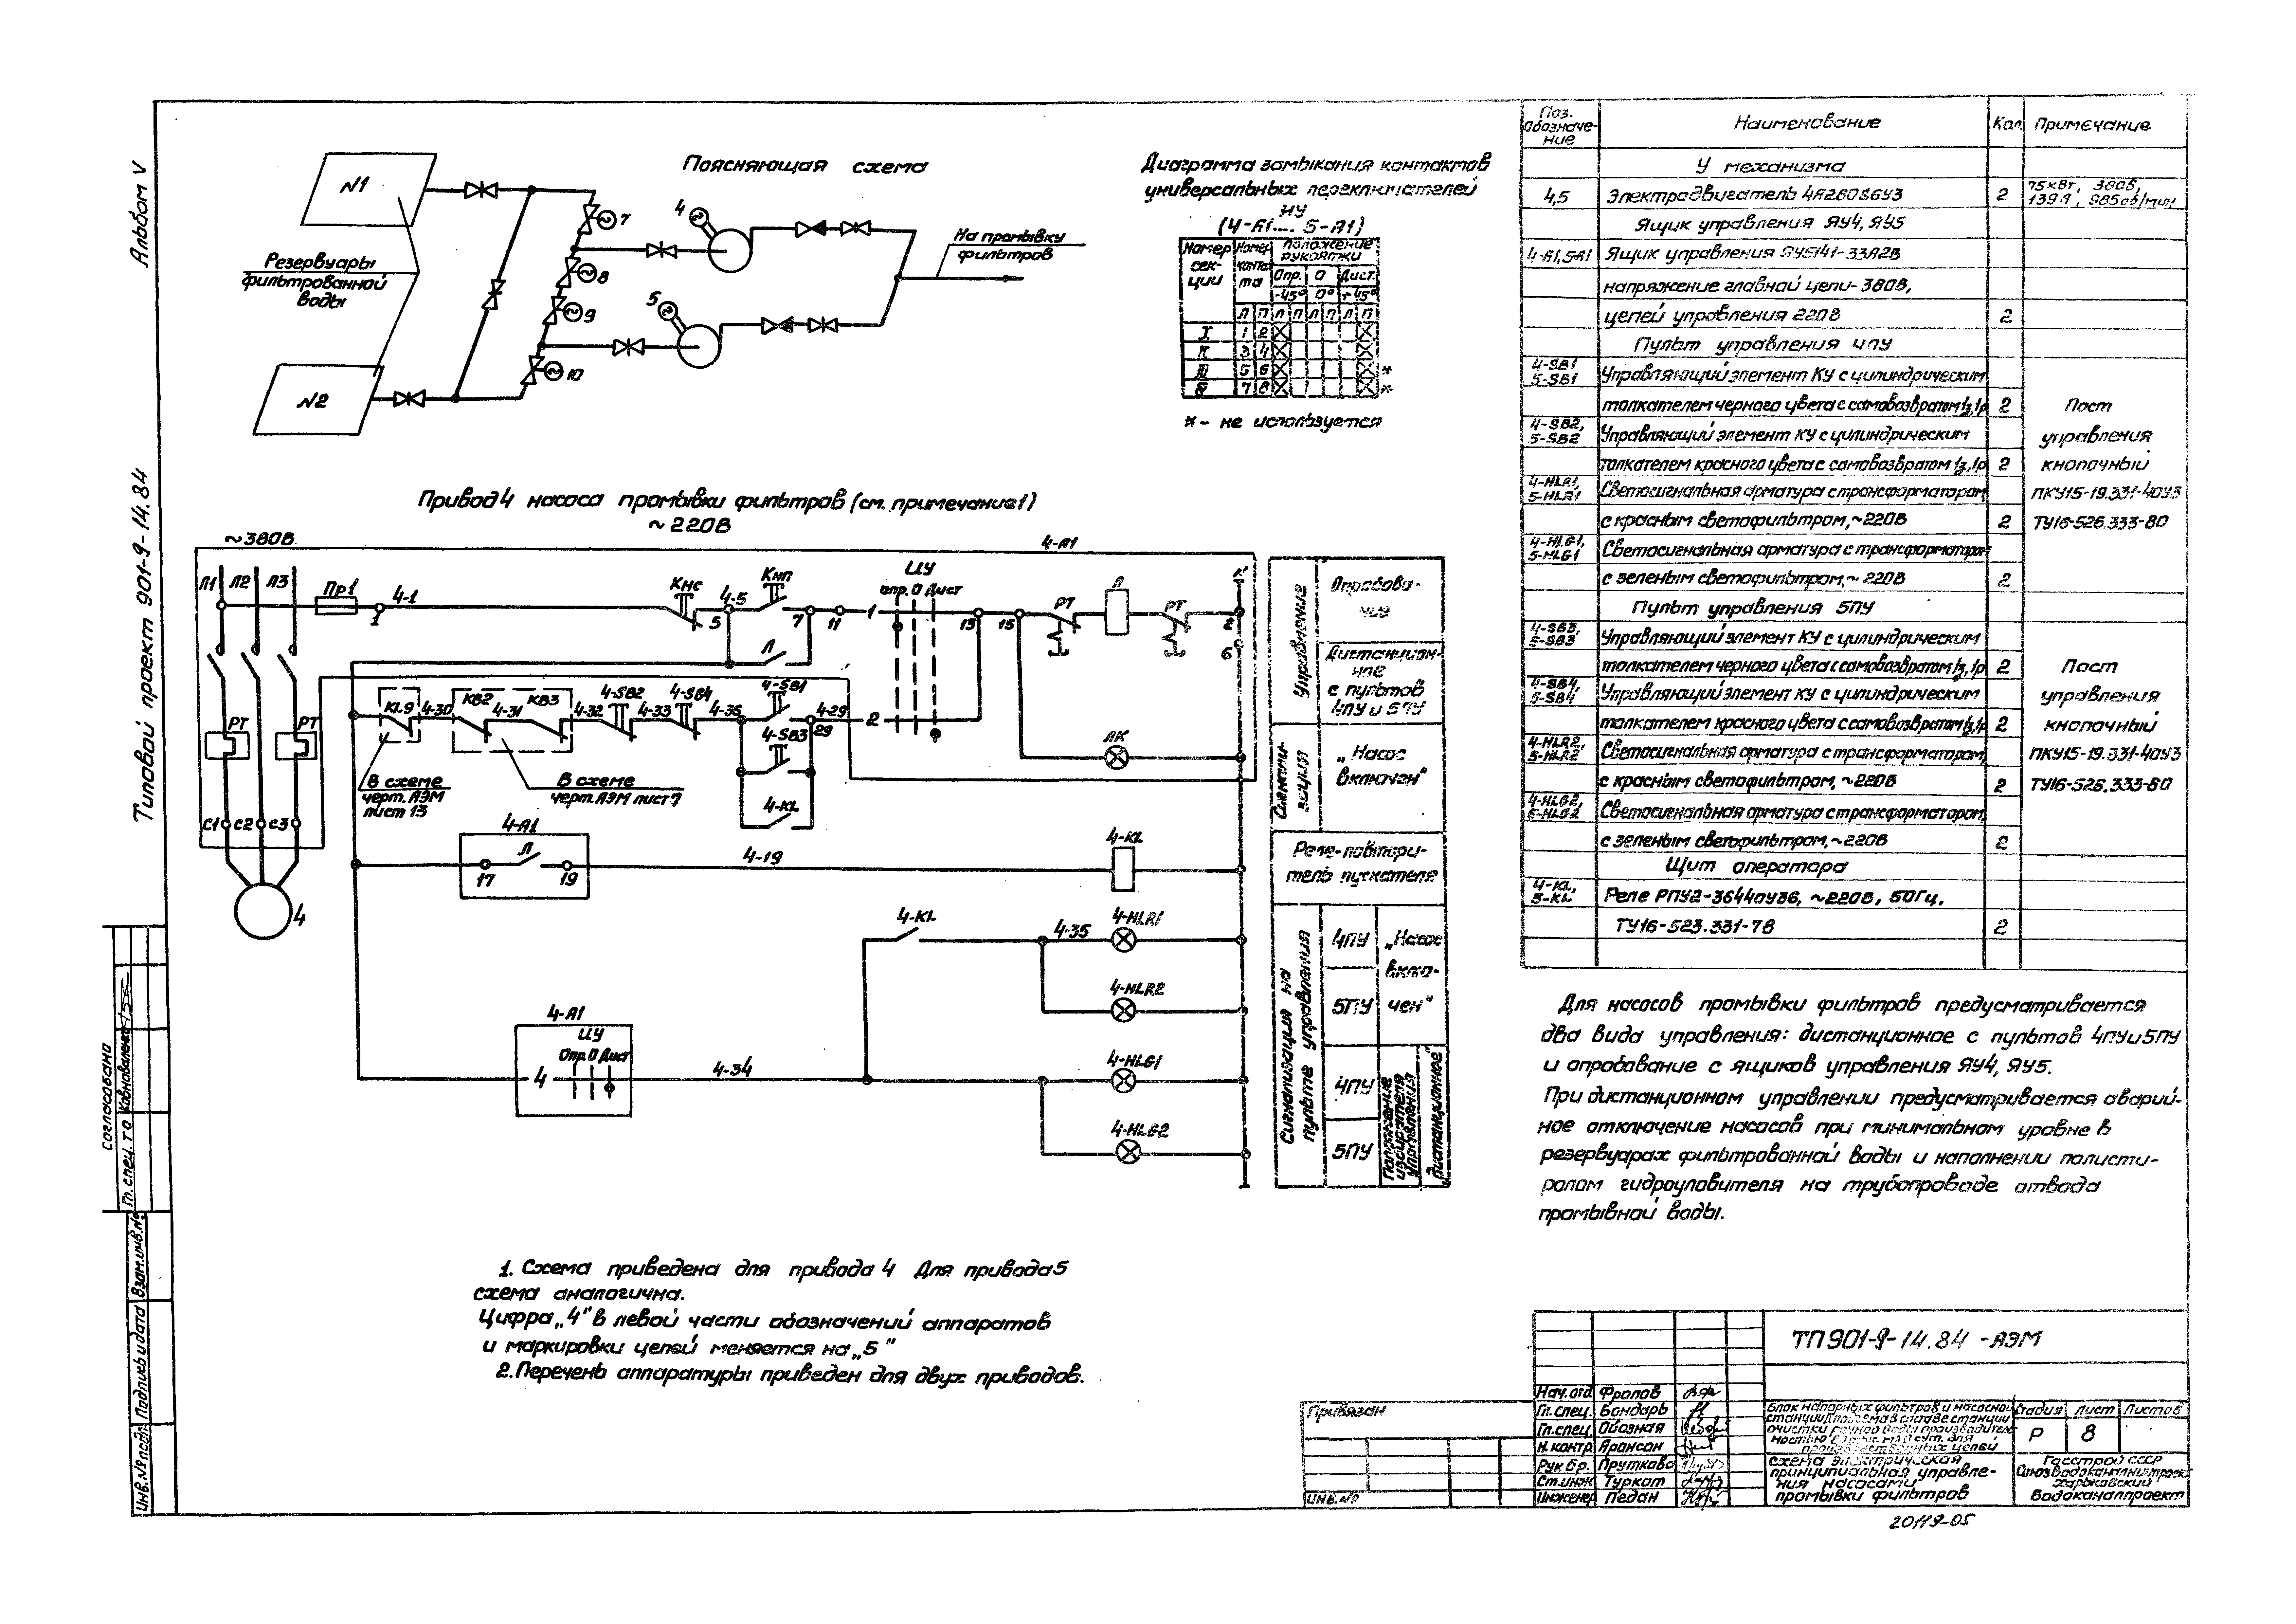 Альбом V
Типовой проект 901-9-14.84
Поясняющая схема
N1
N2
Резервуары
фильтрованной
воды
7
8
9
10
4
5
На промывку
фильтров
Диаграмма замыкания контактов
универсальных переключателей
(4-А1.... 5-А1)
Номер
сек-
ции
Номер
конта
та
Положение
рукоятки
Опр. 0 Дист.
-45° 0° +45°
Л П Л П Л П Л П
I 1 2
II 3 4
III 5 6 *
IV 7 8 *
* - не используется
Привод 4 насоса промывки фильтров (см. примечание 1)
~220В
~380В
4-А1
Л1 Л2 Л3
Пр1
1
4-1
Кнс
5
4-5
Кнп
7
11
1
ЦУ
Опр. 0 Дист
13
15
РТ
Л
РТ
2
6
Л
РТ
РТ
КL9
4-30
КВ2
4-31
КВ3
4-32
4-SB2
4-33
4-SB4
4-36
4-SB1
4-29
29
2
4-SB3
4-KL
ЛК
В схеме
черт. АЭМ
лист 13
В схеме
черт. АЭМ лист 7
С1 С2 С3
4
4-А1
17
Л
19
4-19
4-KL
4-KL
4-35
4-HLR1
4-HLR2
4-А1
ЦУ
Опр. 0 Дист
4
4-34
4-HLG1
4-HLG2
Управление
Опробова-
ние
Дистанцион-
ное
с пультов
4ПУ и 5ПУ
„Насос
включен"
Реле-повтори-
тель пускателя
Сигнализация на
пульте управления
4ПУ
5ПУ
„Насос
вклю-
чен"
4ПУ
5ПУ
Положение
избирателя
управления
„дистанционное"
1. Схема приведена для привода 4 Для привода 5
схема аналогична.
Цифра „4" в левой части обозначений аппаратов
и маркировки цепей меняется на „5"
2. Перечень аппаратуры приведен для двух приводов.
Поз.
Обозначе-
ние
Наименование
Кол
Примечание
У механизма
4,5 Электродвигатель 4А280S6У3 2 75кВт, 380В,
139А, 985об/мин
Ящик управления ЯУ4, ЯУ5
4-А1, 5А1 Ящик управления ЯУ5141-33А2В
напряжение главной цепи- 380В,
цепей управления 220В 2
Пульт управления 4ПУ
4-SB1
5-SB1 Управляющий элемент КУ с цилиндрическим
толкателем черного цвета с самовозвратом 1з,1р 2 Пост
4-SB2,
5-SB2 Управляющий элемент КУ с цилиндрическим управления
толкателем красного цвета с самовозвратом 1з,1р 2 кнопочный
4-HLR1,
5-HLR1 Светосигнальная арматура с трансформатором ПКУ15-19.331-40У3
с красным светофильтром, ~220В 2 ТУ16-526.333-80
4-HLG1,
5-HLG1 Светосигнальная арматура с трансформатором
с зеленым светофильтром, ~ 220В 2
Пульт управления 5ПУ
4-SB3,
5-SB3 Управляющий элемент КУ с цилиндрическим
толкателем черного цвета с самовозвратом 1з,1р 2 Пост
4-SB4,
5-SB4 Управляющий элемент КУ с цилиндрическим управления
толкателем красного цвета с самовозвратом 1з,1р 2 кнопочный
4-HLR2,
5-HLR2 Светосигнальная арматура с трансформатором, ПКУ15-19.331-40У3
с красным светофильтром, ~220В 2 ТУ16-526.333-80
4-HLG2,
5-HLG2 Светосигнальная арматура с трансформатором,
с зеленым светофильтром, ~220В 2
Щит оператора
4-KL,
5-KL Реле РПУ2-36440У3б, ~220В, 50Гц,
ТУ16-523.331-78 2
Для насосов промывки фильтров предусматривается
два вида управления: дистанционное с пультов 4ПУ и 5ПУ
и опробование с ящиков управления ЯУ4, ЯУ5.
При дистанционном управлении предусматривается аварий-
ное отключение насосов при минимальном уровне в
резервуарах фильтрованной воды и наполнении полисти-
ролом гидроуловителя на трубопроводе отвода
промывной воды.
Согласовано
Гл. спец. ТО Коваленко
Инв.№ подл. Подпись и дата Взам.инв.№
Привязан
Инв.№
ТП 901-9-14.84 -АЭМ
Нач. отд Фролов
Гл. спец. Бондарь
Гл. спец. Обозная
Н. контр Аронсон
Рук бр. Пруткова
Ст. инж Туркот
Инженер Педан
Блок напорных фильтров и насосной
Стадия Лист Листов
Р 8
Схема электрическая
принципиальная управле-
ния насосами
промывки фильтров
Госстрой СССР
Союзводоканалниипроект
Харьковский
Водоканалпроект
20119-05